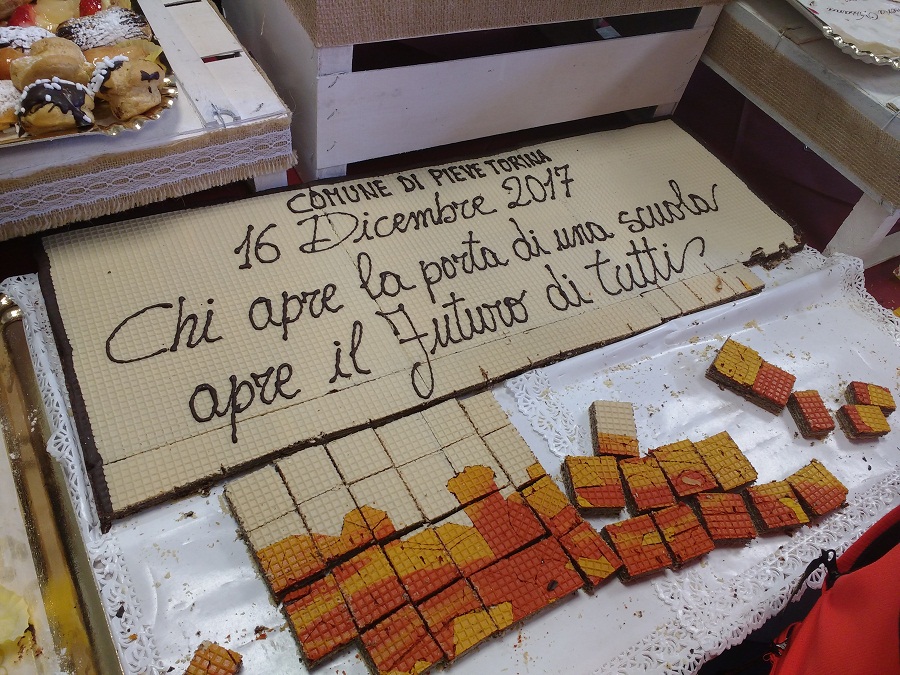 COMUNE DI PIEVE TORINA
16 Dicembre 2017
Chi apre la porta di una scuola
apre il Futuro di tutti